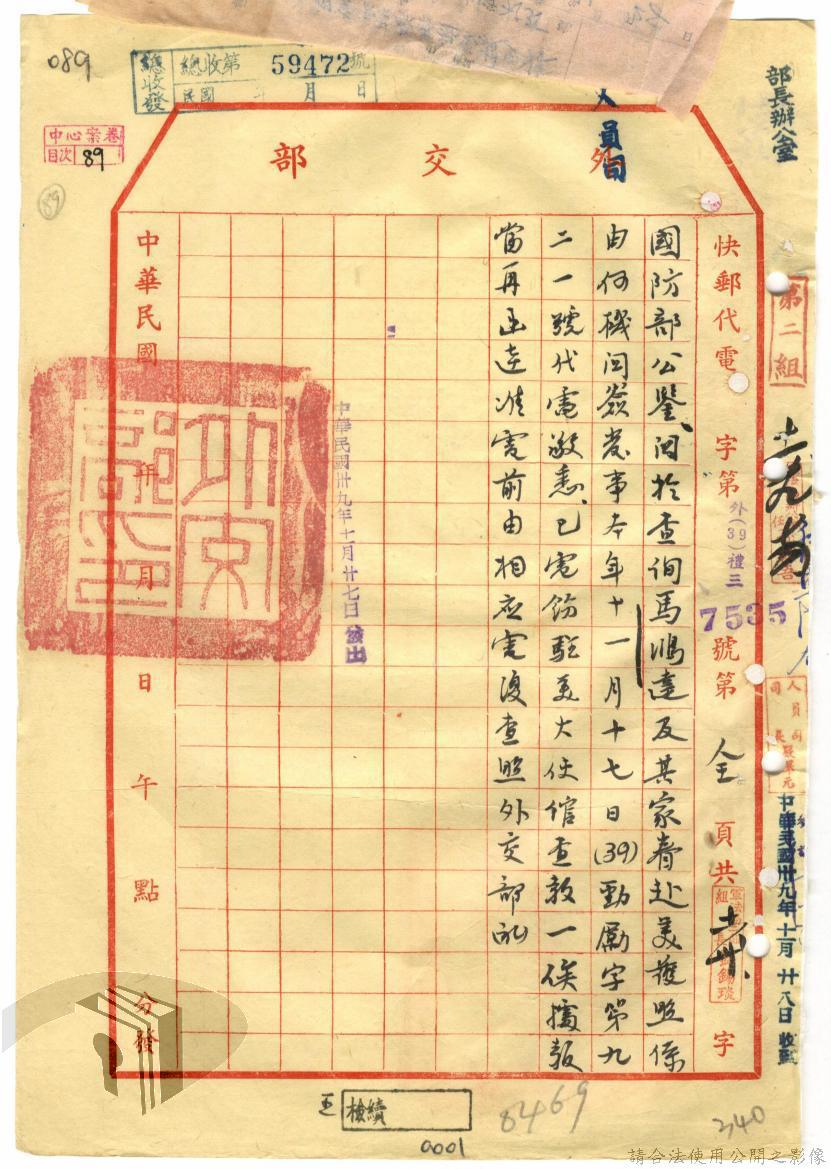 089
總收發
總收第59472號
民國 年 月 日
中心案卷
目次 89
89
部長辦公室
人員司
外交部
第二組
快郵代電 字第 號第 全頁共 字
外(39)禮三
7535
國防部公鑒、關於查詢馬鴻逵及其家眷赴美護照係
由何機關簽發事本年十一月十七日(39)勁勵字第九
二一號代電敬悉、已電飭駐美大使館查報一俟擄報
當再函達准電前由相應電復查照外交部
中華民國卅九年十一月廿七日發出
中華民國 年 月 日 午 點 分發
外交部印
中華民國卅九年十一月廿八日收到
檢續
8469
340
0001
請合法使用公開之影像